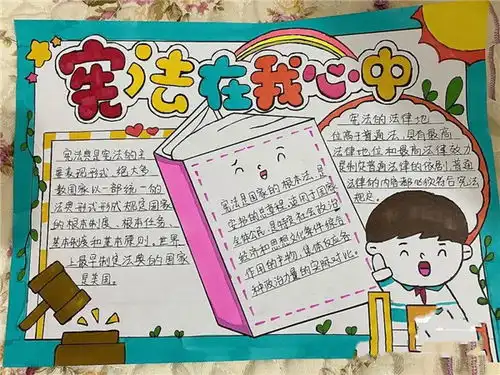 宪法在我心中
宪法典是宪法的主
要表现形式,绝大多
数国家以一部统一的
法典形式形式规定国家
的根本制度、根本任务、
基本制度和基本原则,世界
上最早制定法典的国家
是美国。
宪法是国家的根本法,是
安邦的总章程,适用于国家
全体公民,是特定社会政治
经济和思想文化条件综合
作用的产物,集体反应各
种政治力量的实际对比。
宪法的法律地
位高于普通法,具有最高
法律地位和最高法律效力
是制定普通法律的依据,普通
法律的内容都必须符合宪法
规定。